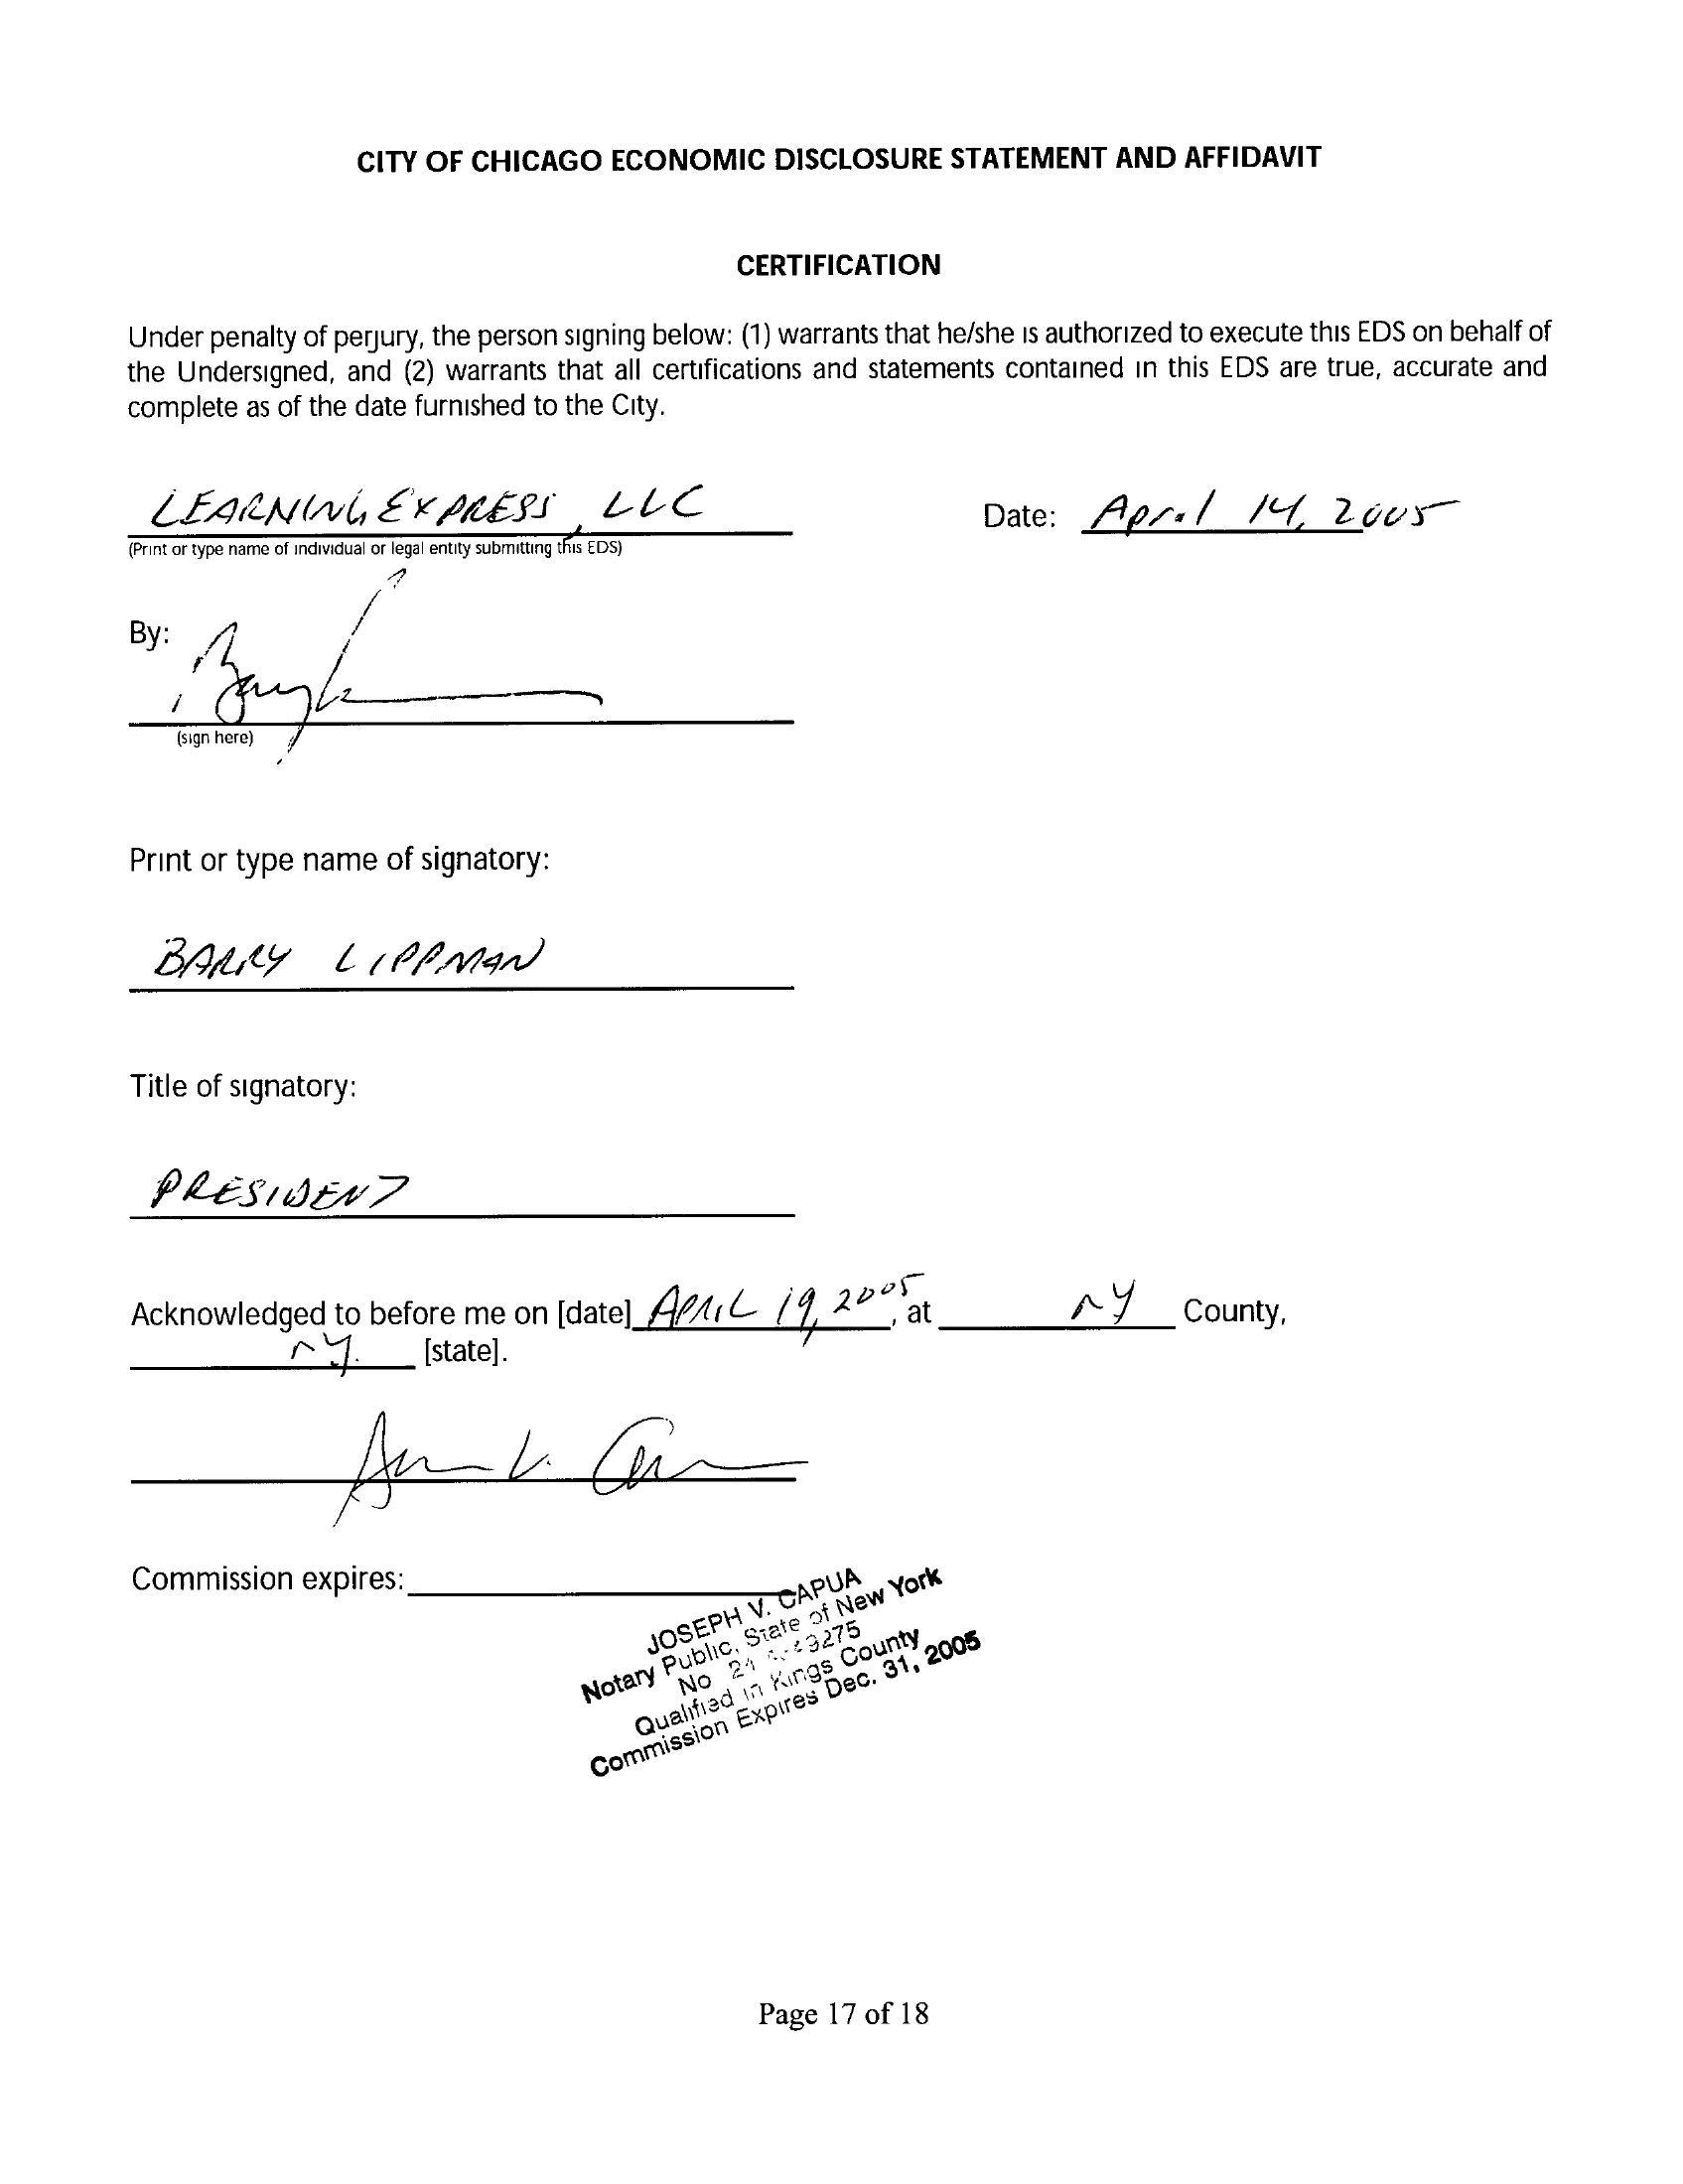 CITY OF CHICAGO ECONOMIC DISCLOSURE STATEMENT AND AFFIDAVIT
CERTIFICATION
Under penalty of perjury, the person signing below: (1) warrants that he/she is authorized to execute this EDS on behalf of
the Undersigned, and (2) warrants that all certifications and statements contained in this EDS are true, accurate and
complete as of the date furnished to the City.
LEARNINGEXPRESS, LLC Date: April 14, 2005
(Print or type name of individual or legal entity submitting this EDS)
By:
(sign here)
Print or type name of signatory:
BARRY LIPPMAN
Title of signatory:
PRESIDENT
Acknowledged to before me on [date] APRIL 19, 2005, at NY County,
NY. [state].
Commission expires:
JOSEPH V. CAPUA
Notary Public, State of New York
No 24
Qualified in Kings County
Commission Expires Dec. 31, 2005
Page 17 of 18